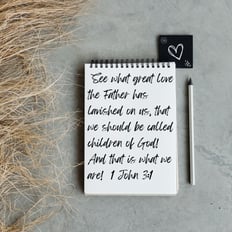 "See what great love
the Father has
lavished on us, that
we should be called
children of God!
And that is what we
are! 1 John 3:1